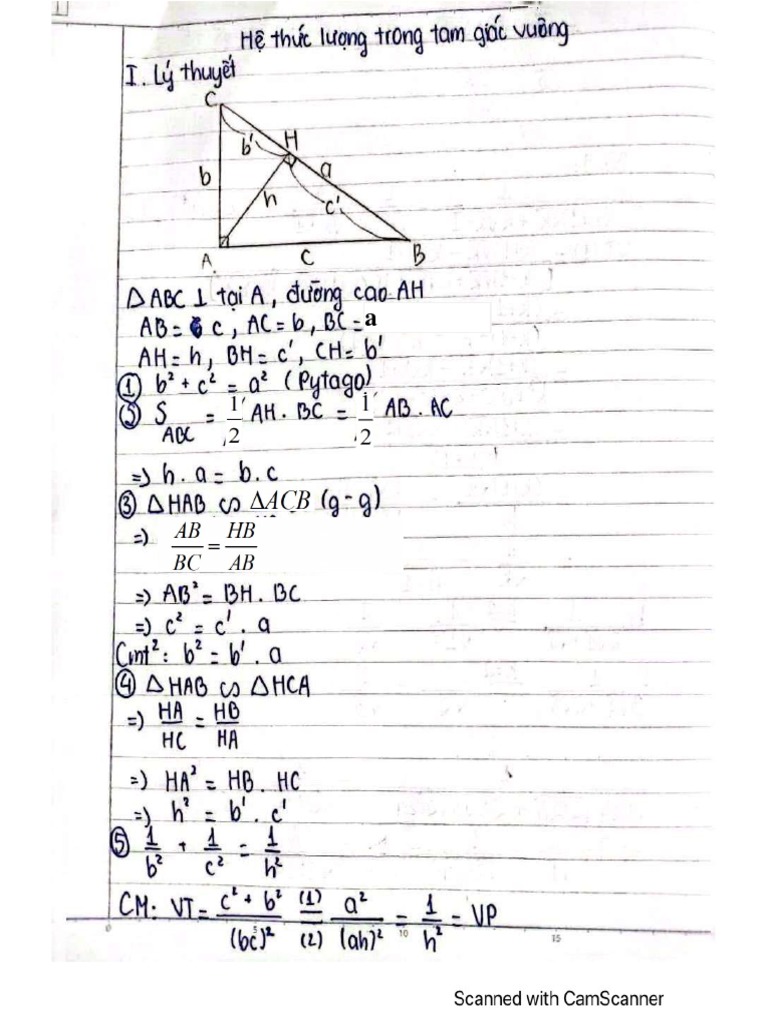 Hệ thức lượng trong tam giác vuông
I. Lý thuyết
C
b'
H
b
a
h
c'
A
C
B
△ABC ⊥ tại A, đường cao AH
AB = c, AC = b, BC = a
AH = h, BH = c', CH = b'
① b² + c² = a² (Pytago)
② S_ABC = 1/2 AH . BC = 1/2 AB . AC
=> h . a = b . c
③ △HAB ∽ ΔACB (g-g)
=> AB/BC = HB/AB
=> AB² = BH . BC
=> c² = c' . a
Cmt²: b² = b' . a
④ △HAB ∽ △HCA
=> HA/HC = HB/HA
=> HA² = HB . HC
=> h² = b' . c'
⑤ 1/b² + 1/c² = 1/h²
CM: VT = (c² + b²)/(bc)² =(1)(2) a²/(ah)² = 1/h² = VP
0 5 10 15
Scanned with CamScanner